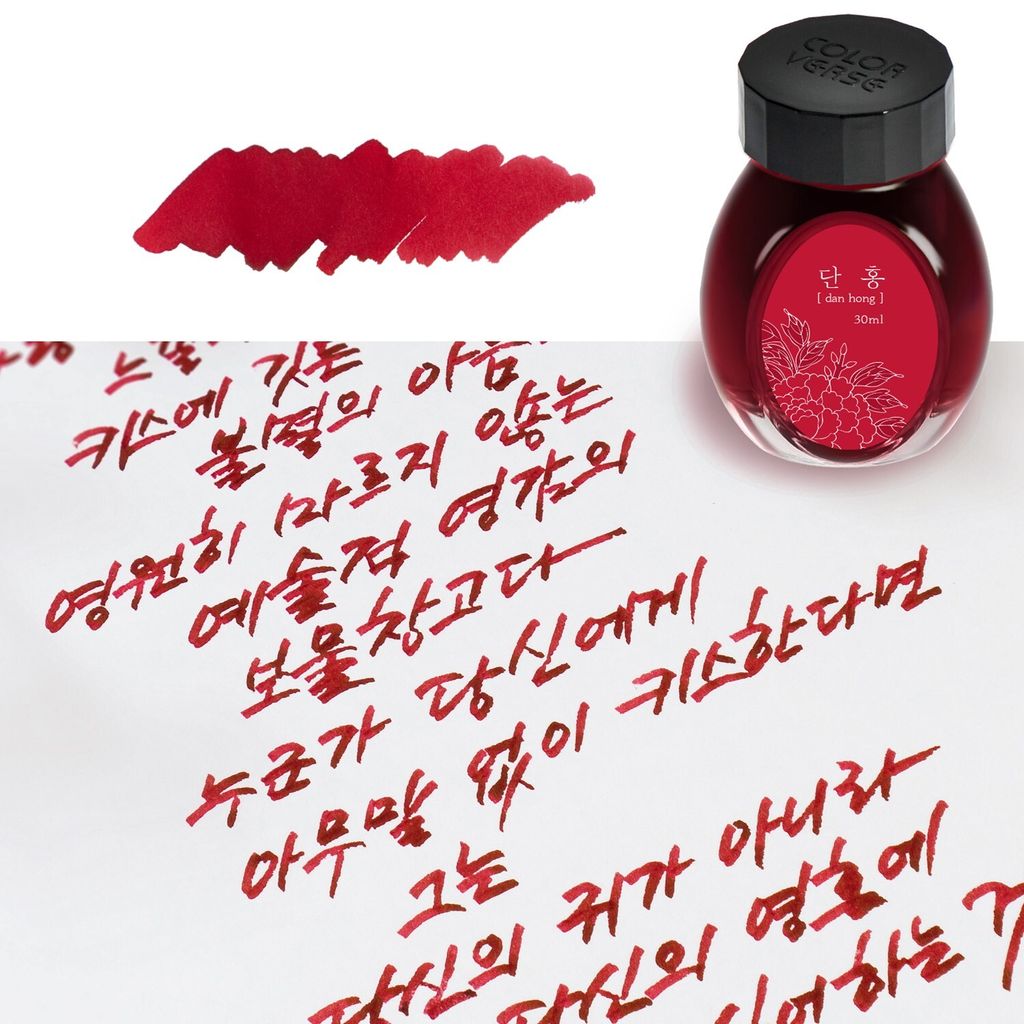 COLOR
VERSE
단 홍
[ dan hong ]
30ml
키스에 깃든
불멸의 아름
영원히 마르지 않는
예술적 영감의
보물창고다
누군가 당신에게
아무말 없이 키스한다면
그는
당신의 귀가 아니라
당신의 영혼에